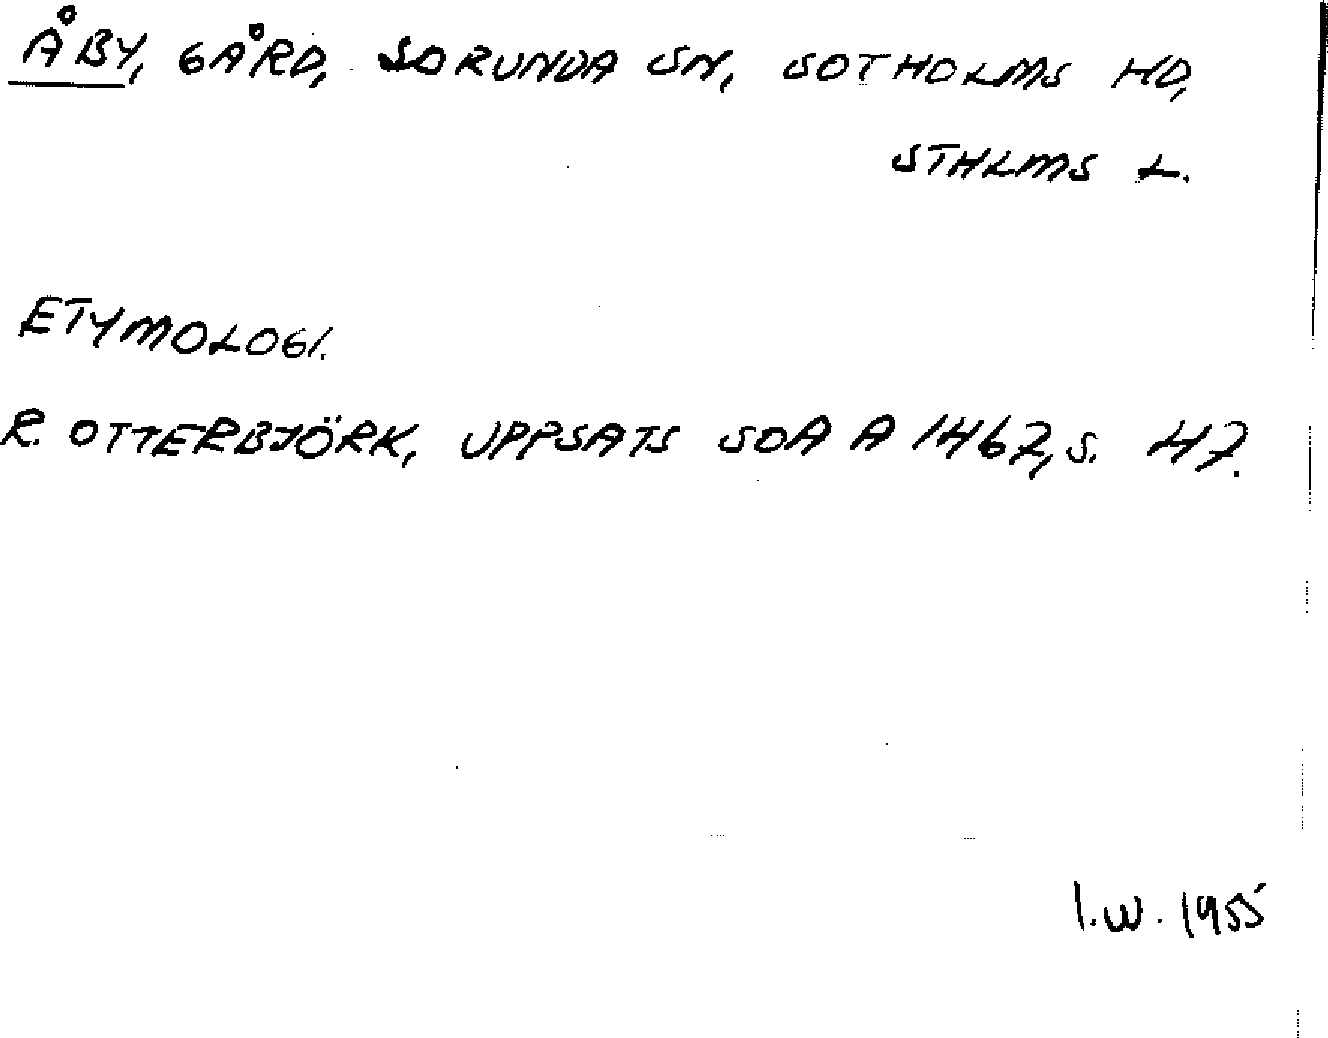 ÅBY, GÅRD, SORUNDA SN, SOTHOLMS HD,
STHLMS L.
ETYMOLOGI.
R. OTTERBJÖRK, UPPSATS SOA A 1462, S. 47.
I.W. 1955